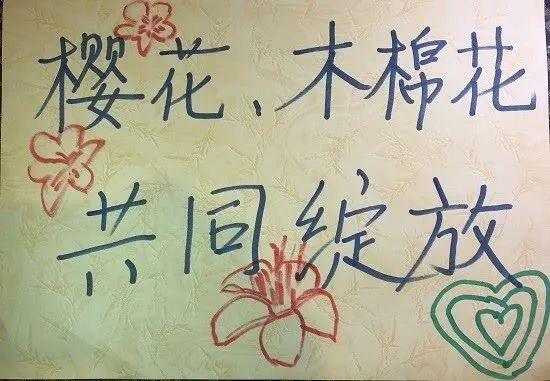 樱花、木棉花
共同绽放